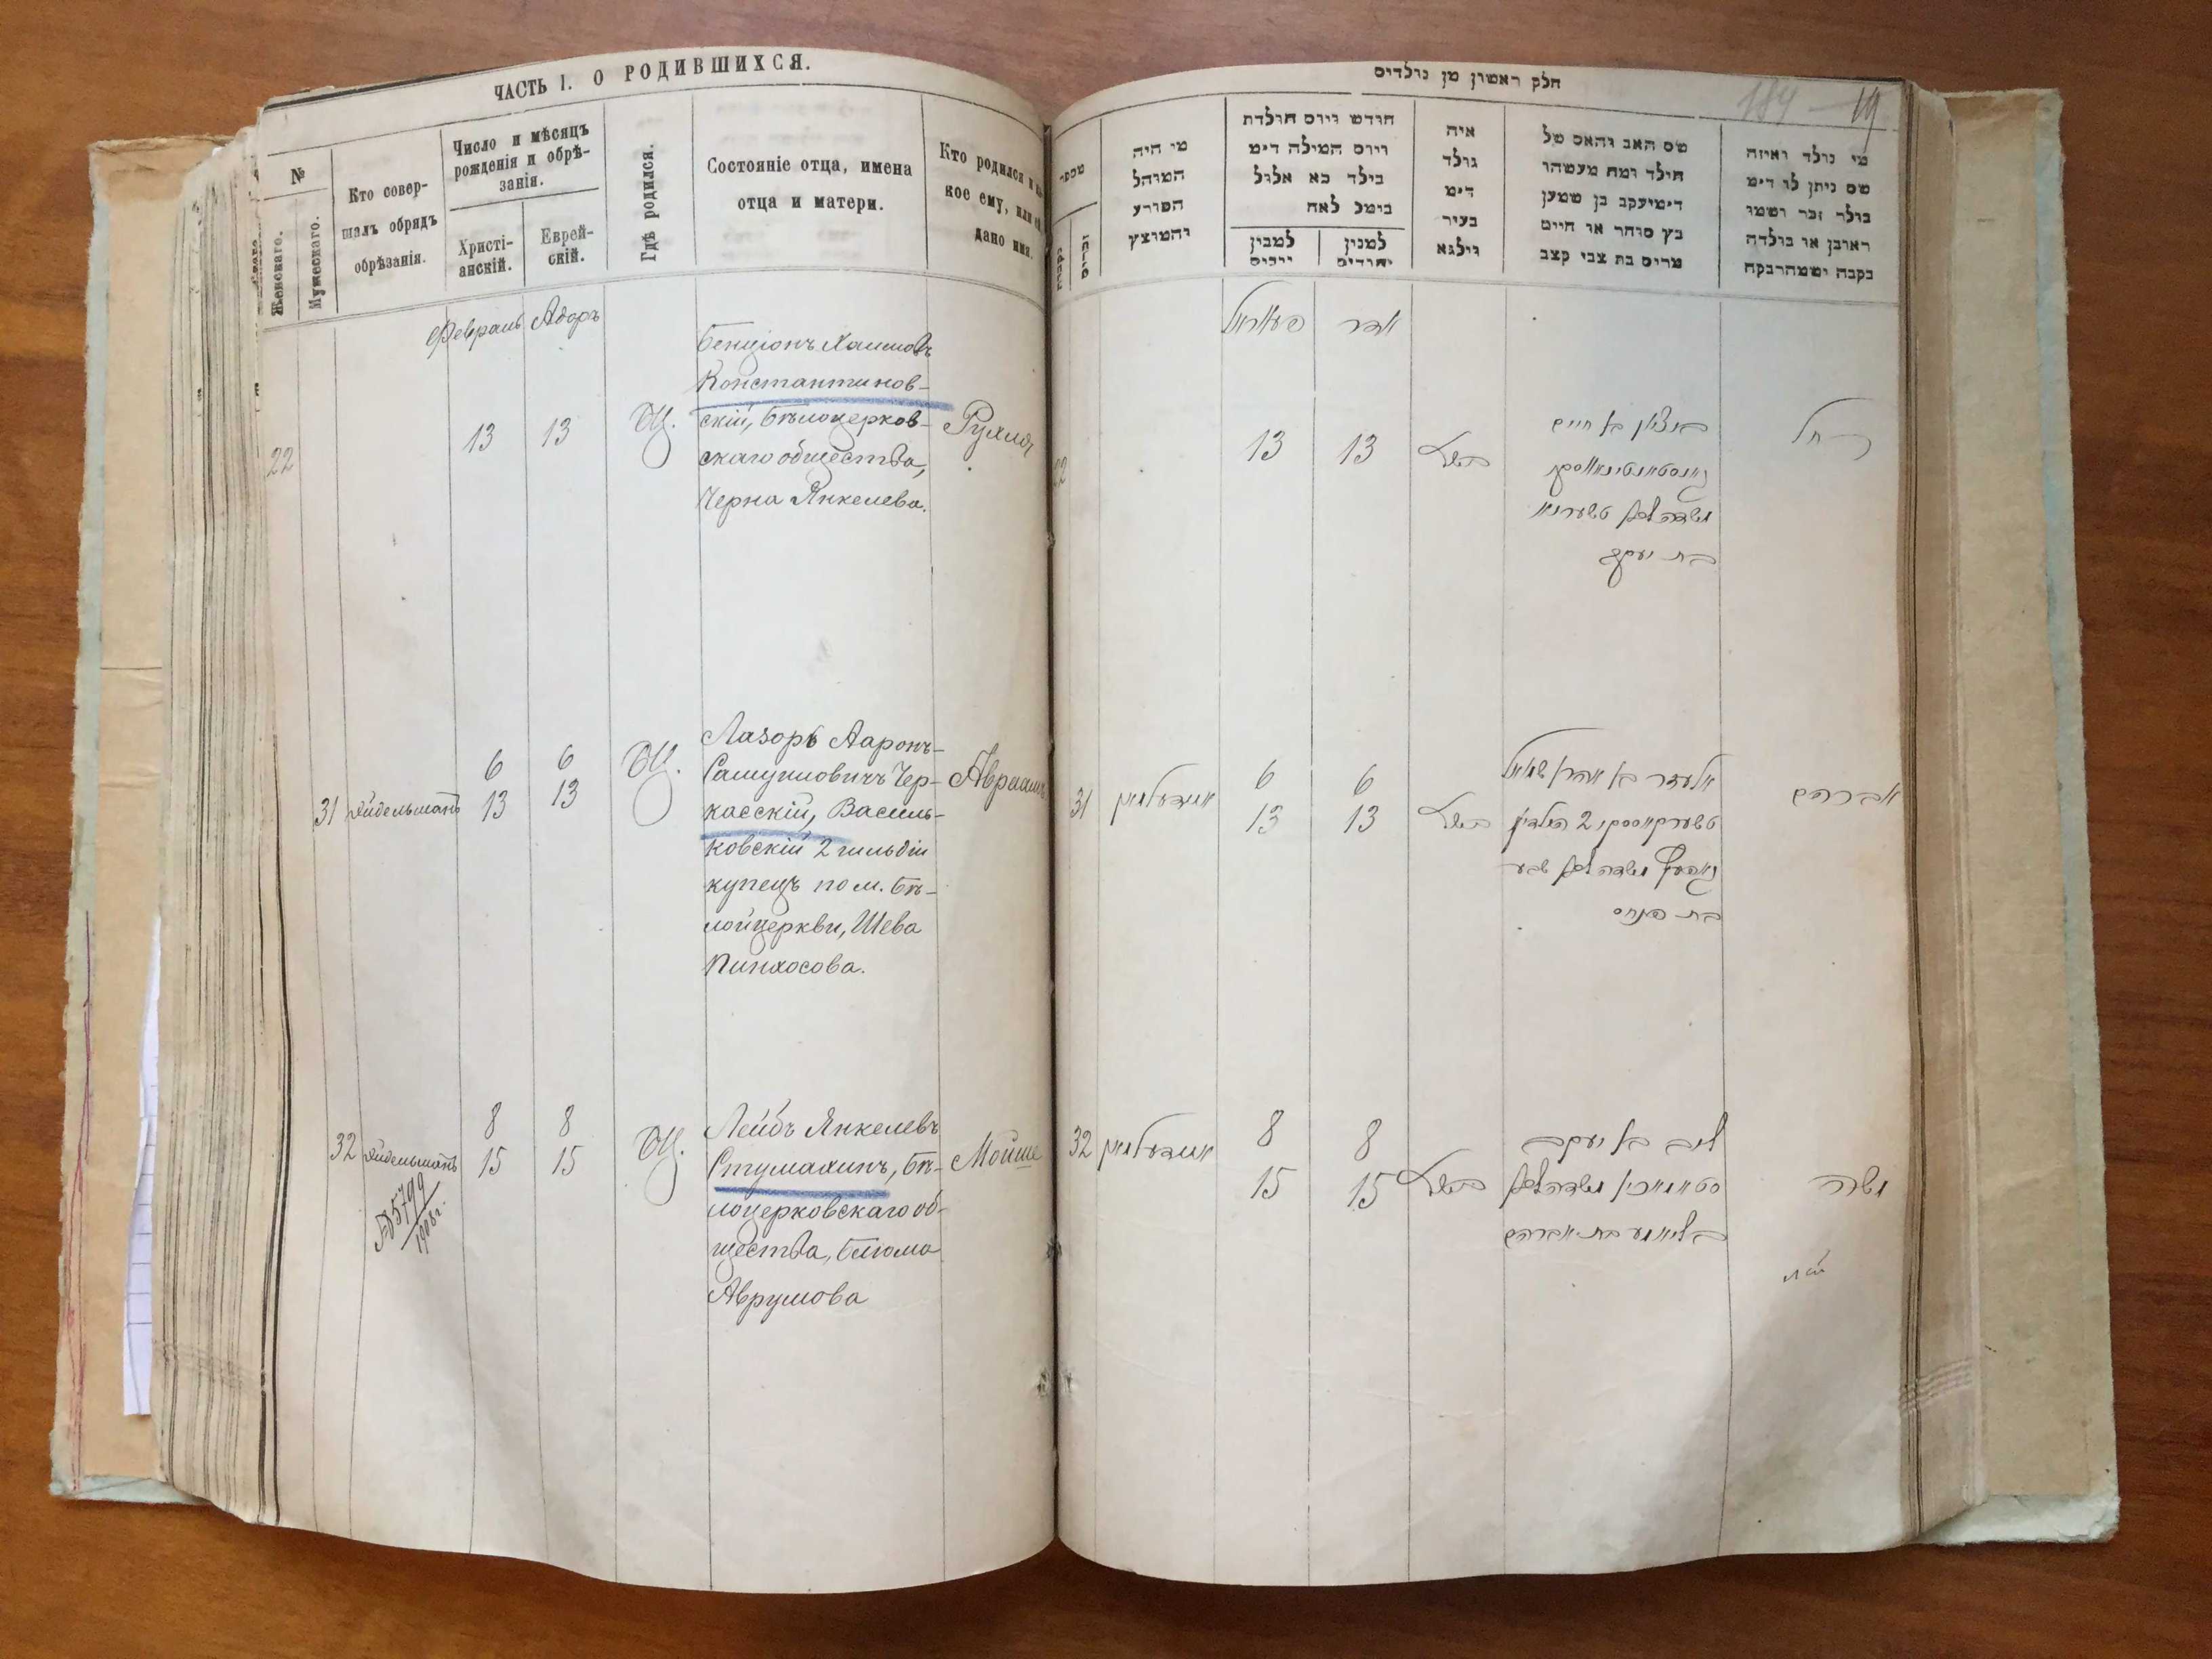 ЧАСТЬ I. О РОДИВШИХСЯ.
№
Женскаго.
Мужескаго.
Кто совер-
шалъ обрядъ
обрѣзанія.
Число и мѣсяцъ
рожденія и обрѣ-
занія.
Христі-
анскій.
Еврей-
скій.
Гдѣ родился.
Состояніе отца, имена
отца и матери.
Кто родился и ка-
кое ему, или ей
дано имя.
Февраль Адаръ
22
13 13
БЦ.
Бенціонъ Хаимовъ
Константинов-
скій, Бѣлоцерков-
скаго общества,
Черна Янкелева.
Рухля
31 Эйдельманъ
6 6
13 13
БЦ.
Лазорь Ааронъ-
Самуиловичъ Чер-
касскій, Василь-
ковскій 2 гильдіи
купецъ по м. Бѣ-
лойцеркви, Шева
Пинхосова.
Авраамъ
32 Эйдельманъ
№5799
1908г.
8 8
15 15
БЦ.
Лейбъ Янкелевъ
Стумахинъ, Бѣ-
лоцерковскаго об-
щества, Блюма
Аврумова
Мойше
חלק ראשון מן נולדים
184 19
מספר
נקבות
זכרים
מי היה
המוהל
הפורע
והמוצץ
חודש ויום הולדת
ויום המילה דימ
בילד כא אלול
בימל לאח
למבין
ייבים
למנין
יהודים
איה
נולד
דימ
בעיר
ווילנא
שם האב והאם של
הילד ומה מעשהו
דימיעקב בן שמען
כץ סוחר או חייט
מרים בת צבי קצב
מי נולד ואיזה
שם ניתן לו דימ
בולר זכר ושמו
ראובן או בולדה
בקבה ושמהרבקה
פעווראל אדר
22
13 13
בן ציון בן חיים
קאנסטאנטינאווסקי
טשערנא
בת יעקב
רחל
31 איידעלמאן
6 6
13 13
אלעזר בן אהרן שמואל
טשערקאססקי 2 הילדיי
שבע
בת פנחס
אברהם
32 איידעלמאן
8 8
15 15
ליב בן יעקב
סטאמאכין
בליומע בת אברהם
משה